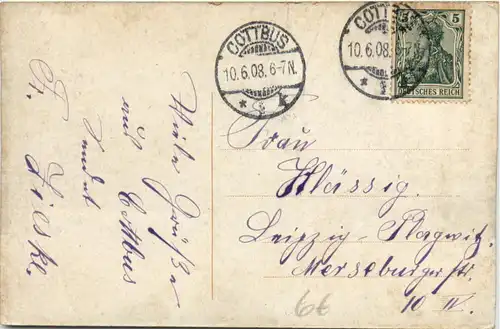 COTTBUS
10.6.08.6-7N.
COTTBUS
10.6.08.6-7N.
5
DEUTSCHES REICH
Viele Grüße
aus Cottbus
sendet
Fr. Lieske.
Frau
Klässig.
Leipzig-Plagwitz
Merseburgerstr.
10 IV.
66